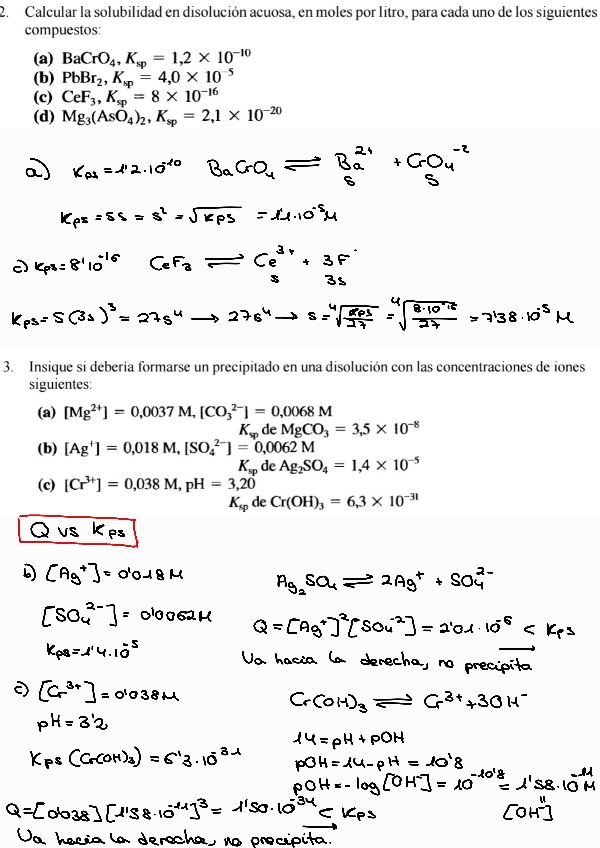 2. Calcular la solubilidad en disolución acuosa, en moles por litro, para cada uno de los siguientes
compuestos:
(a) BaCrO₄, Kₛₚ = 1,2 × 10⁻¹⁰
(b) PbBr₂, Kₛₚ = 4,0 × 10⁻⁵
(c) CeF₃, Kₛₚ = 8 × 10⁻¹⁶
(d) Mg₃(AsO₄)₂, Kₛₚ = 2,1 × 10⁻²⁰
a) Kps = 1'2·10⁻¹⁰ BaCrO₄ ⇌ Ba²⁺ + CrO₄⁻²
s s
Kps = s s = s² = √Kps = 1'1·10⁻⁵ M
c) Kps = 8'10⁻¹⁶ CeF₃ ⇌ Ce³⁺ + 3F⁻
s 3s
Kps = s(3s)³ = 27s⁴ → 27s⁴ → s = ⁴√(Kps/27) = ⁴√(8·10⁻¹⁶/27) = 7'38·10⁻⁵ M
3. Insique si debería formarse un precipitado en una disolución con las concentraciones de iones
siguientes:
(a) [Mg²⁺] = 0,0037 M, [CO₃²⁻] = 0,0068 M
Kₛₚ de MgCO₃ = 3,5 × 10⁻⁸
(b) [Ag⁺] = 0,018 M, [SO₄²⁻] = 0,0062 M
Kₛₚ de Ag₂SO₄ = 1,4 × 10⁻⁵
(c) [Cr³⁺] = 0,038 M, pH = 3,20
Kₛₚ de Cr(OH)₃ = 6,3 × 10⁻³¹
Q vs Kps
b) [Ag⁺] = 0'018 M Ag₂SO₄ ⇌ 2Ag⁺ + SO₄²⁻
[SO₄²⁻] = 0'0062M Q = [Ag⁺]²[SO₄⁻²] = 2'01·10⁻⁶ < Kps
Kps = 1'4·10⁻⁵ Va hacia la derecha, no precipita
c) [Cr³⁺] = 0'038M Cr(OH)₃ ⇌ Cr³⁺ + 3OH⁻
pH = 3'2 14 = pH + pOH
Kps (Cr(OH)₃) = 6'3·10⁻³¹ pOH = 14 - pH = 10'8
pOH = -log[OH⁻] = 10⁻¹⁰'⁸ = 1'58·10⁻¹¹ M
Q = [0'038][1'58·10⁻¹¹]³ = 1'50·10⁻³⁴ < Kps [OH⁻]
Va hacia la derecha, no precipita.